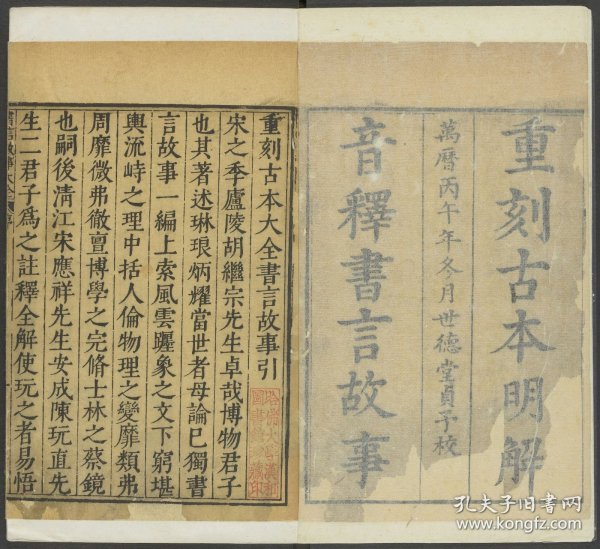 重刻古本明解
萬曆丙午年冬月世德堂貞予校
音釋書言故事
重刻古本大全書言故事引
宋之季廬陵胡繼宗先生卓哉博物君子
也其著述琳琅炳耀當世者毋論已獨書
言故事一編上索風雲躔象之文下窮堪
輿流峙之理中括人倫物理之變靡類弗
周靡微弗徹亶博學之完脩士林之蔡鏡
也嗣後清江宋應祥先生安成陳玩直先
生二君子為之註釋全解使玩之者易悟
哈佛大學漢和圖書館藏印
孔夫子旧书网
www.kongfz.com